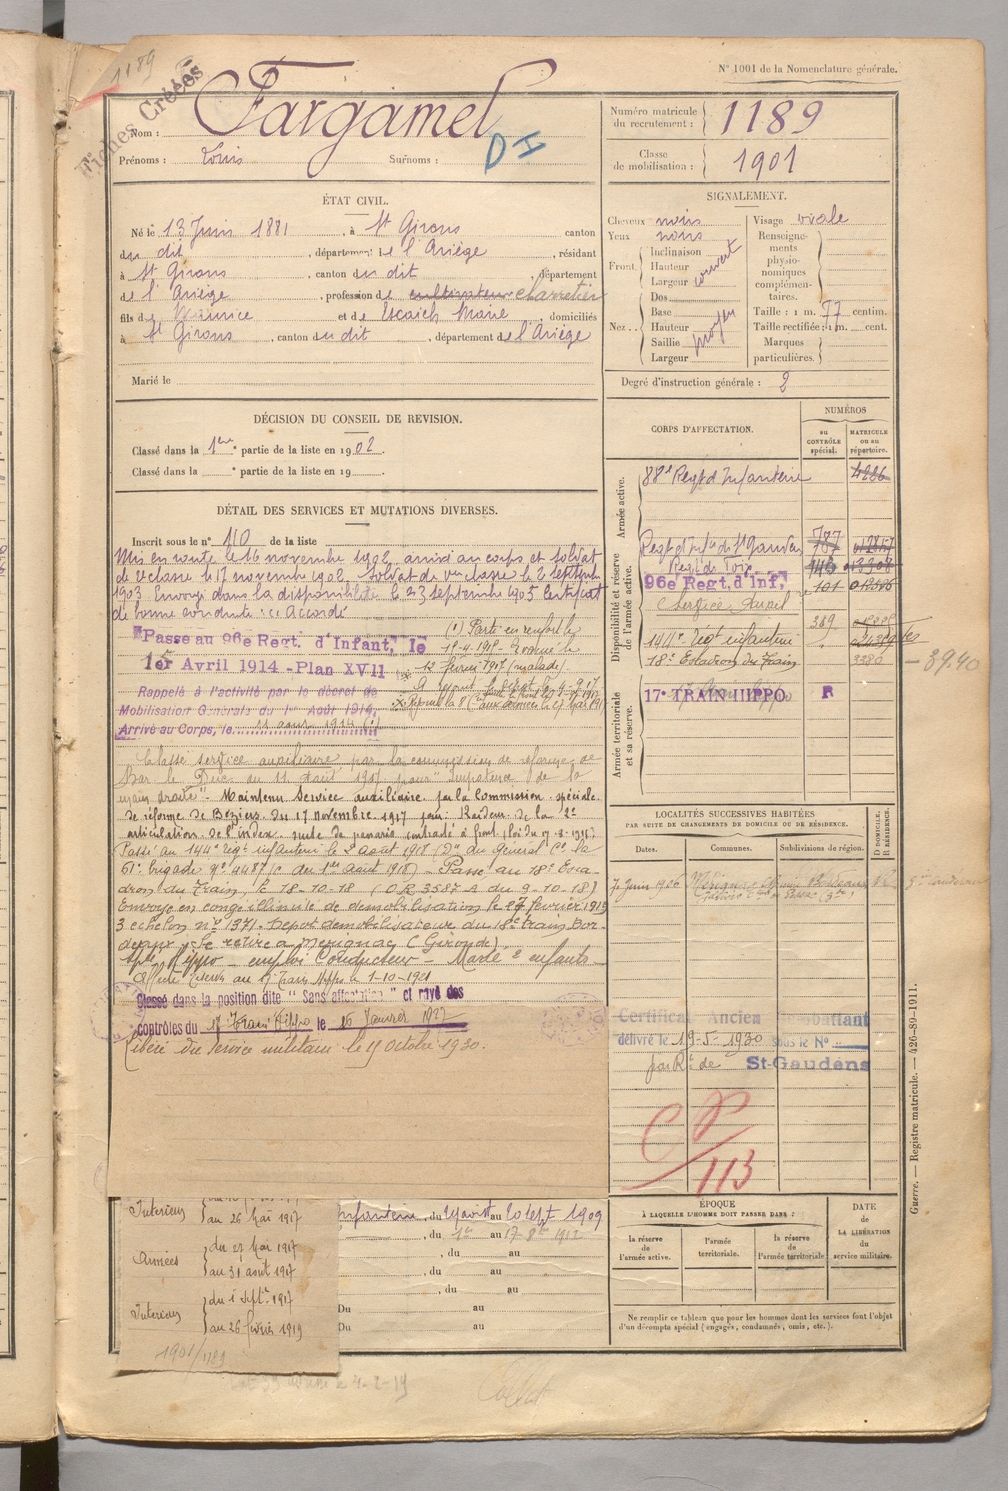 1189
Fiches Créées
N° 1001 de la Nomenclature générale.
Nom : Fargamel
Prénoms : Louis Surnoms :
DI
Numéro matricule du recrutement : 1189
Classe de mobilisation : 1901
ÉTAT CIVIL.
Né le 13 Juin 1881, à St Girons canton
du dit, département de l'Ariège, résidant
à St Girons, canton du dit, département
de l'Ariège, profession de cultivateur charretier
fils de Maurice et de Escaich Marie, domiciliés
à St Girons, canton du dit, département de l'Ariège
Marié le
SIGNALEMENT.
Cheveux noirs
Yeux noirs
Front Inclinaison Hauteur Largeur couvert
Nez Dos Base Hauteur Saillie Largeur moyen
Visage ovale
Renseignements physionomiques complémentaires.
Taille : 1 m. 77 centim.
Taille rectifiée : 1 m. cent.
Marques particulières.
Degré d'instruction générale : 2
DÉCISION DU CONSEIL DE REVISION.
Classé dans la 1ère partie de la liste en 1902
Classé dans la e partie de la liste en 19
DÉTAIL DES SERVICES ET MUTATIONS DIVERSES.
Inscrit sous le n° 110 de la liste
Mis en route le 16 novembre 1902 arrivé au corps et soldat
de 2e classe le 17 novembre 1902. Soldat de 1re classe le 2 septembre
1903 Envoyé dans la disponibilité le 23 septembre 1905 Certificat
de bonne conduite : "Accordé"
Passé au 96e Regt. d'Infant, le
1er Avril 1914 - Plan XVII
Rappelé à l'activité par le décret de
Mobilisation Générale du 1er Août 1914.
Arrivé au Corps, le 11 aout 1914 (1)
(1) Parti en renfort le
12 fevrier 1917 (malade)
Classé service auxiliaire par la commission de réforme de
Bar le Duc du 11 Août 1917 pour "Impotence de la
main droite". Maintenu Service auxiliaire par la Commission spéciale
de réforme de Béziers du 17 novembre 1917 pour : Raideur de la 2e
articulation de l'index, suite de panaris contracté à front.
Passé au 144e Régt infanterie le 2 août 1918 (On du Général Ct la
61e brigade n° 4487/c du 1er août 1918) - Passé au 18e Esca-
dron du Train, le 18-10-18 (OR 3587 A du 9-10-18)
Envoyé en congé illimité de démobilisation le 27 février 1919
3 echelon n° 1371. Depot demobilisateur du 18e train Bor-
deaux. Se retire a Merignac (Gironde).
Apte Hippo - emploi Conducteur - Marié 2 enfants
Affecté Réserve au 17 Train Hippo le 1-10-1921
Classé dans la position dite "Sans affectation" et rayé des
contrôles du 17 Train Hippo le 16 Janvier 1927
Libéré du service militaire le 15 Octobre 1930.
CORPS D'AFFECTATION.
NUMÉROS
au CONTRÔLE spécial.
MATRICULE ou au répertoire.
Armée active.
88e Regt d'Infanterie 4286
Disponibilité et réserve de l'armée active.
Regt d'Inf. de St Gaudens 787
Regt de Foix 146
96e Regt. d'Inf. 101
Service Auxil
389
144e Régt infanterie
18e Escadron du Train 3380
39.40
Armée territoriale et sa réserve.
17e TRAIN HIPPO R
LOCALITÉS SUCCESSIVES HABITÉES
PAR SUITE DE CHANGEMENTS DE DOMICILE OU DE RÉSIDENCE.
Dates. Communes. Subdivisions de région. D DOMICILE. R RÉSIDENCE
7 Juin 1906 Mérignac
Certificat Ancien Combattant
délivré le 19-5-1930 sous le N°
par Rt de St-Gaudens
CP/113
ÉPOQUE
À LAQUELLE L'HOMME DOIT PASSER DANS :
la réserve de l'armée active. l'armée territoriale. la réserve de l'armée territoriale
DATE DE LA LIBÉRATION du service militaire.
Ne remplir ce tableau que pour les hommes dont les services font l'objet
d'un décompte spécial (engagés, condamnés, omis, etc.).
Intérieur au 26 Mai 1917
Armées du 27 Mai 1917
au 31 août 1917
Intérieur du 1 Septre 1917
au 26 février 1919
1901/1189
infanterie, du 29 août au 20 sept 1909
, du 1er au 17 8bre 1912
, du au
, du au
, du au
Du au
Du au
Guerre. — Registre matricule. — 426-89-1911.